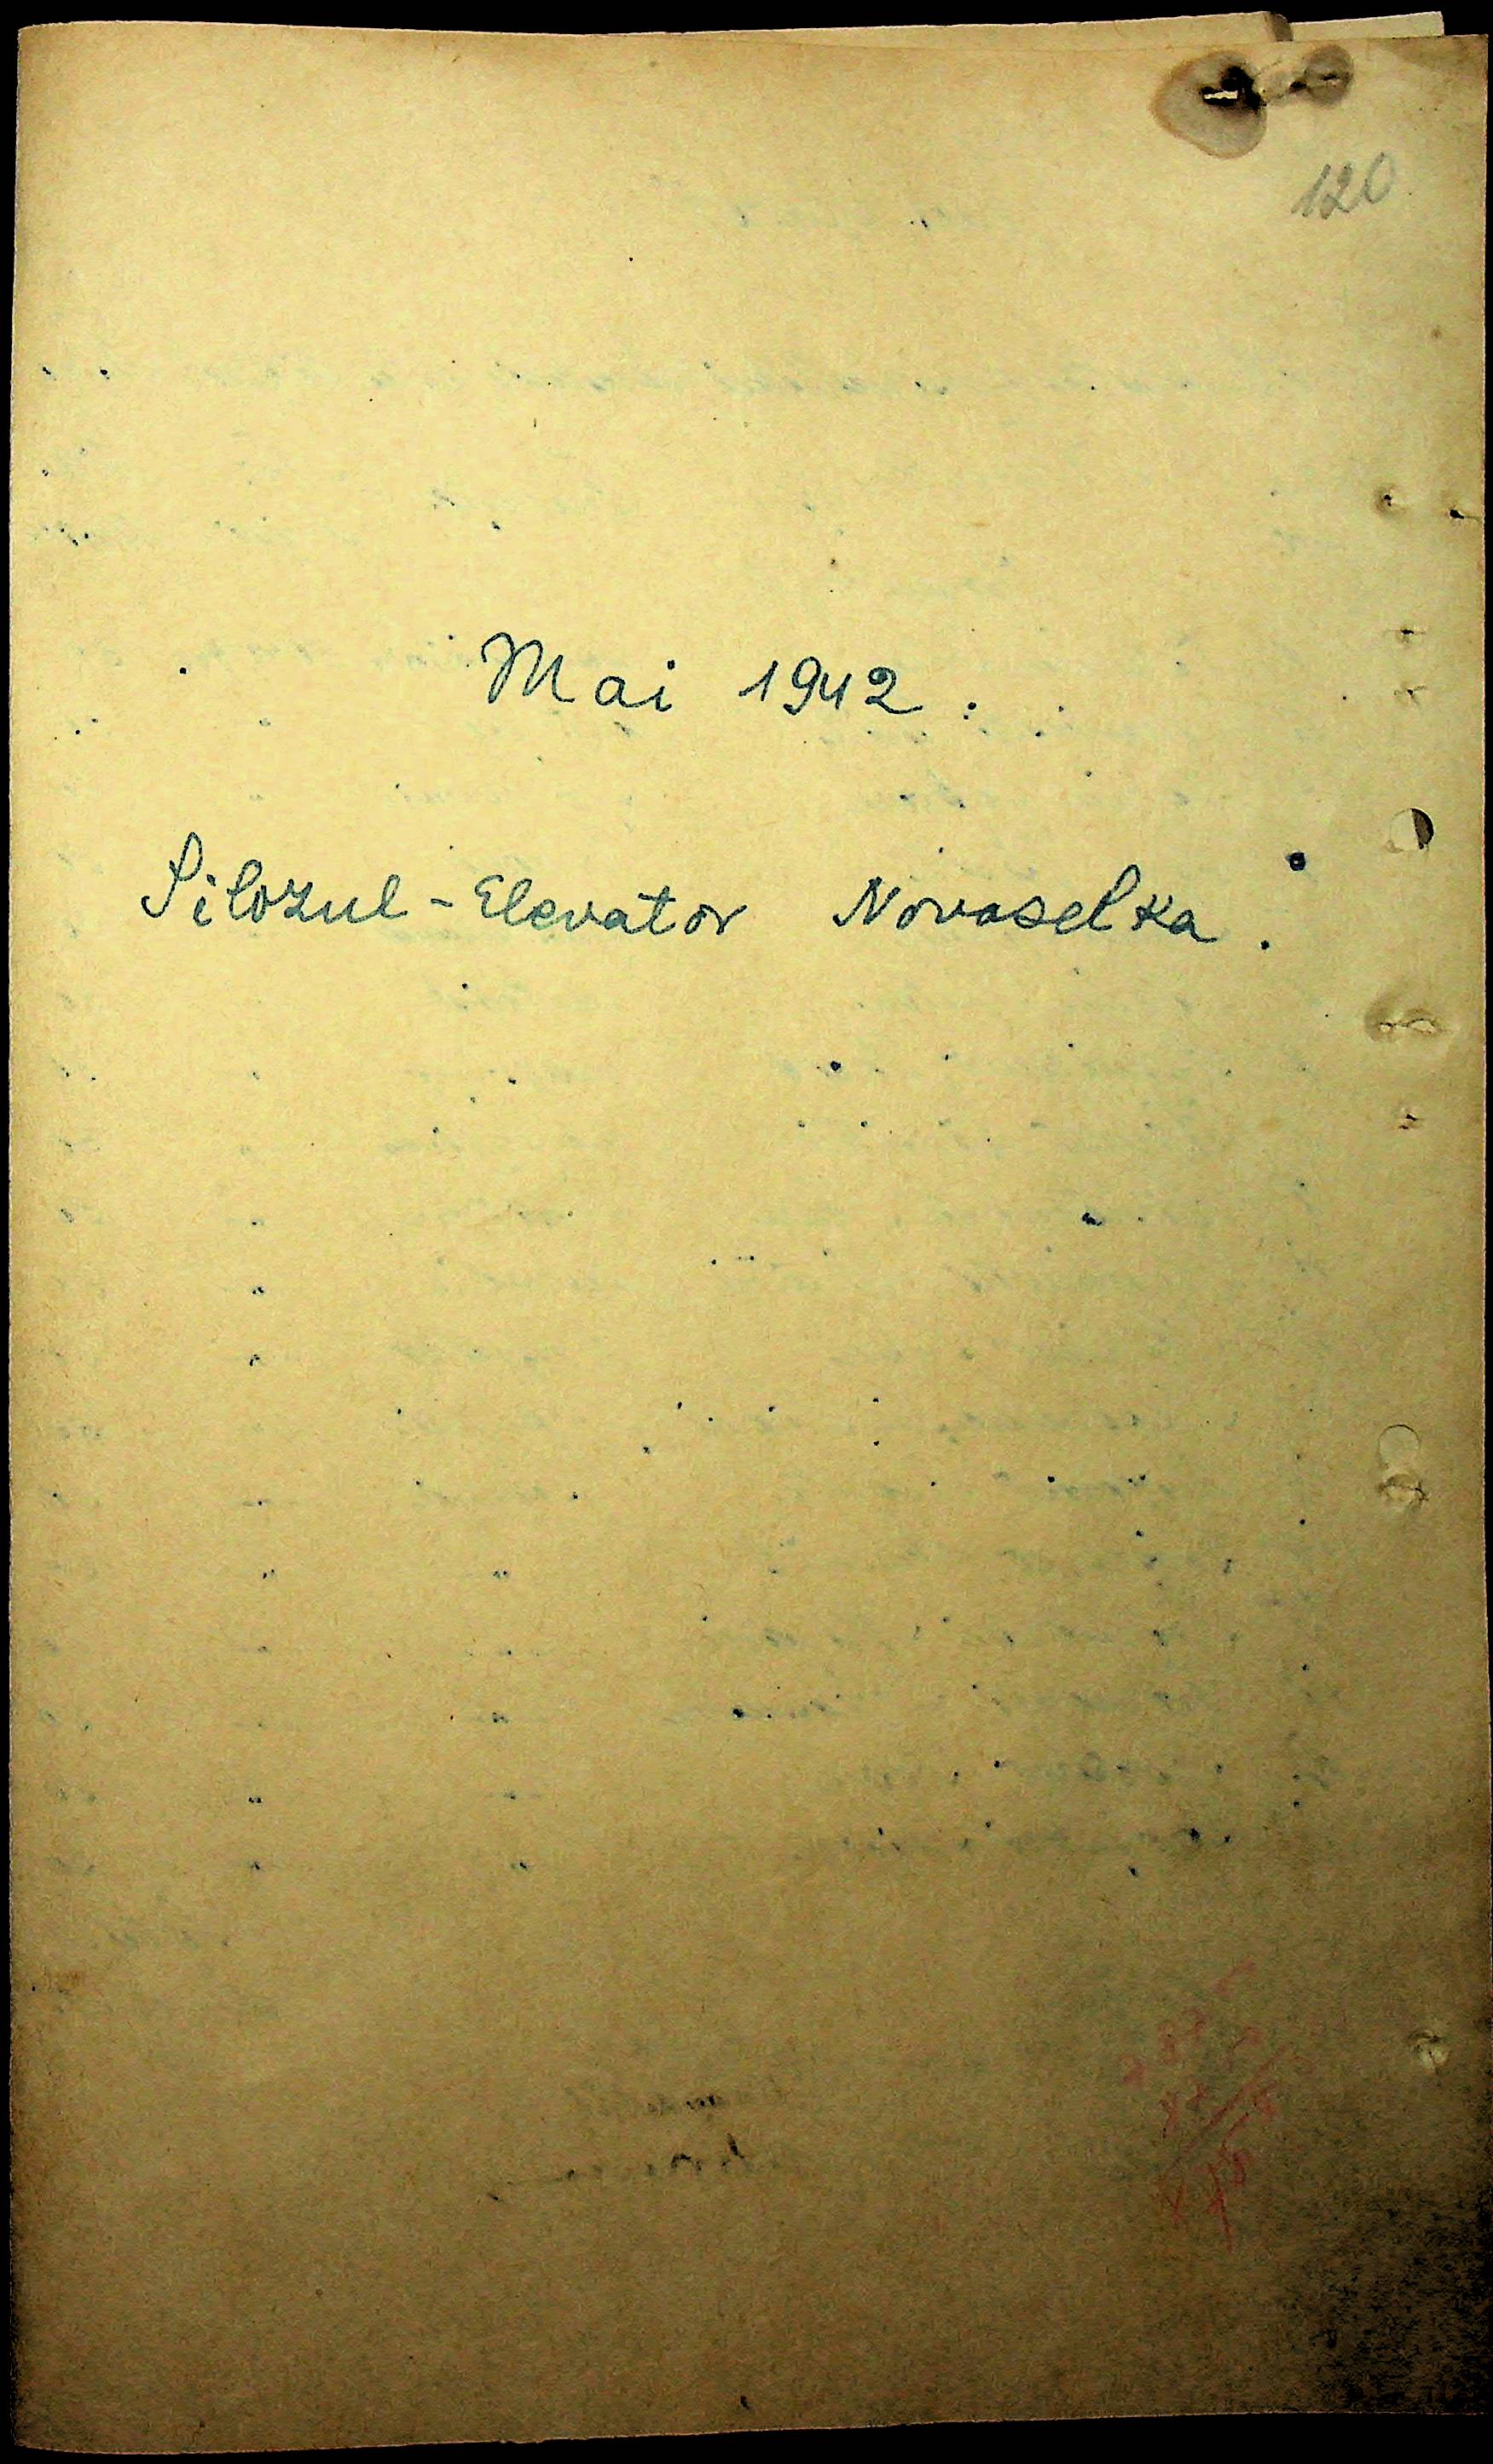 120
Mai 1942.
Silozul-Elevator Novoselka.